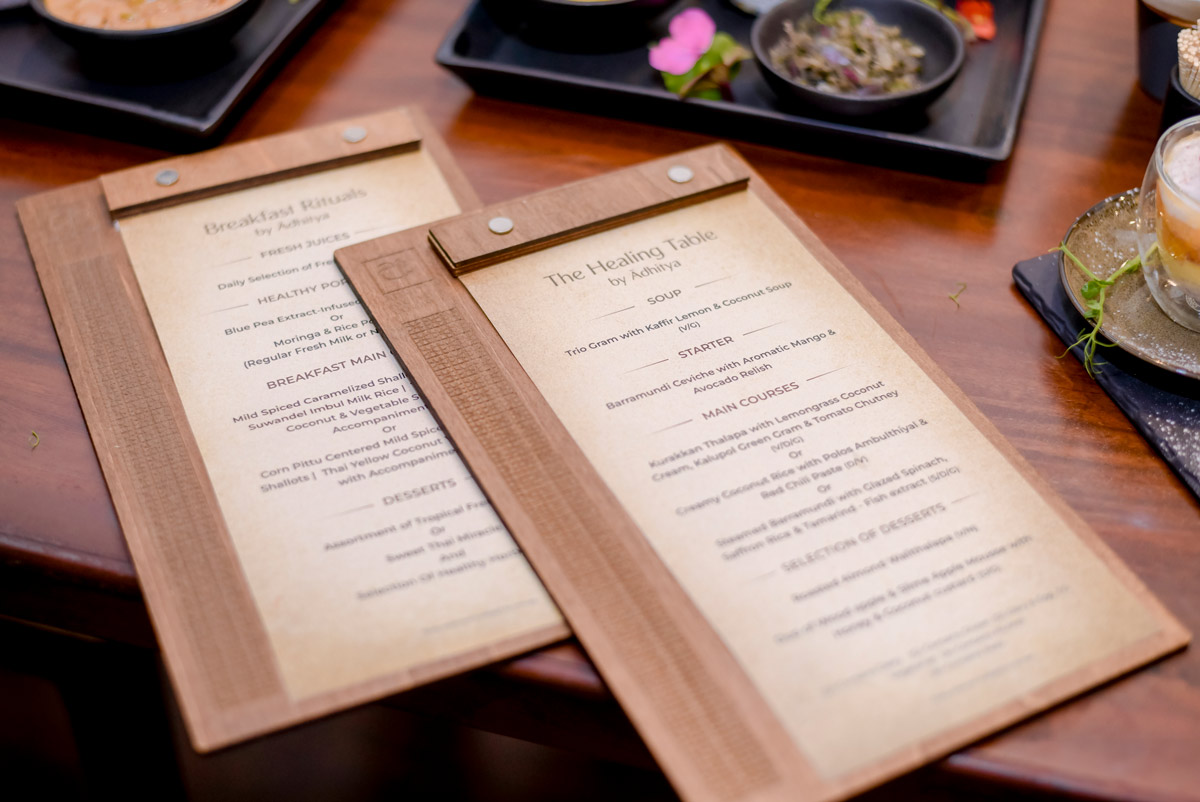 Breakfast Rituals
by Adhitya
FRESH JUICES
Daily Selection of Fre
HEALTHY POR
Blue Pea Extract-Infused
Or
Moringa & Rice Po
(Regular Fresh Milk or N
BREAKFAST MAIN
Mild Spiced Caramelized Shall
Suwandel Imbul Milk Rice |
Coconut & Vegetable S
Accompanimen
Or
Corn Pittu Centered Mild Spice
Shallots | Thai Yellow Coconut
with Accompanime
DESSERTS
Assortment of Tropical Fre
Or
Sweet Thai Miracle
And
Selection Of Healthy
The Healing Table
by Adhitya
SOUP
Trio Gram with Kaffir Lemon & Coconut Soup
(V/G)
STARTER
Barramundi Ceviche with Aromatic Mango &
Avocado Relish
MAIN COURSES
Kurakkan Thalapa with Lemongrass Coconut
Cream, Kalupol Green Gram & Tomato Chutney
(V/D/G)
Or
Creamy Coconut Rice with Polos Ambulthiyal &
Red Chili Paste (D/V)
Or
Steamed Barramundi with Glazed Spinach,
Saffron Rice & Tamarind - Fish extract (S/D/G)
SELECTION OF DESSERTS
Roasted Almond Walithalapa (V/N)
apple & Slime Apple Mousse with
Honey & Coconut Custard